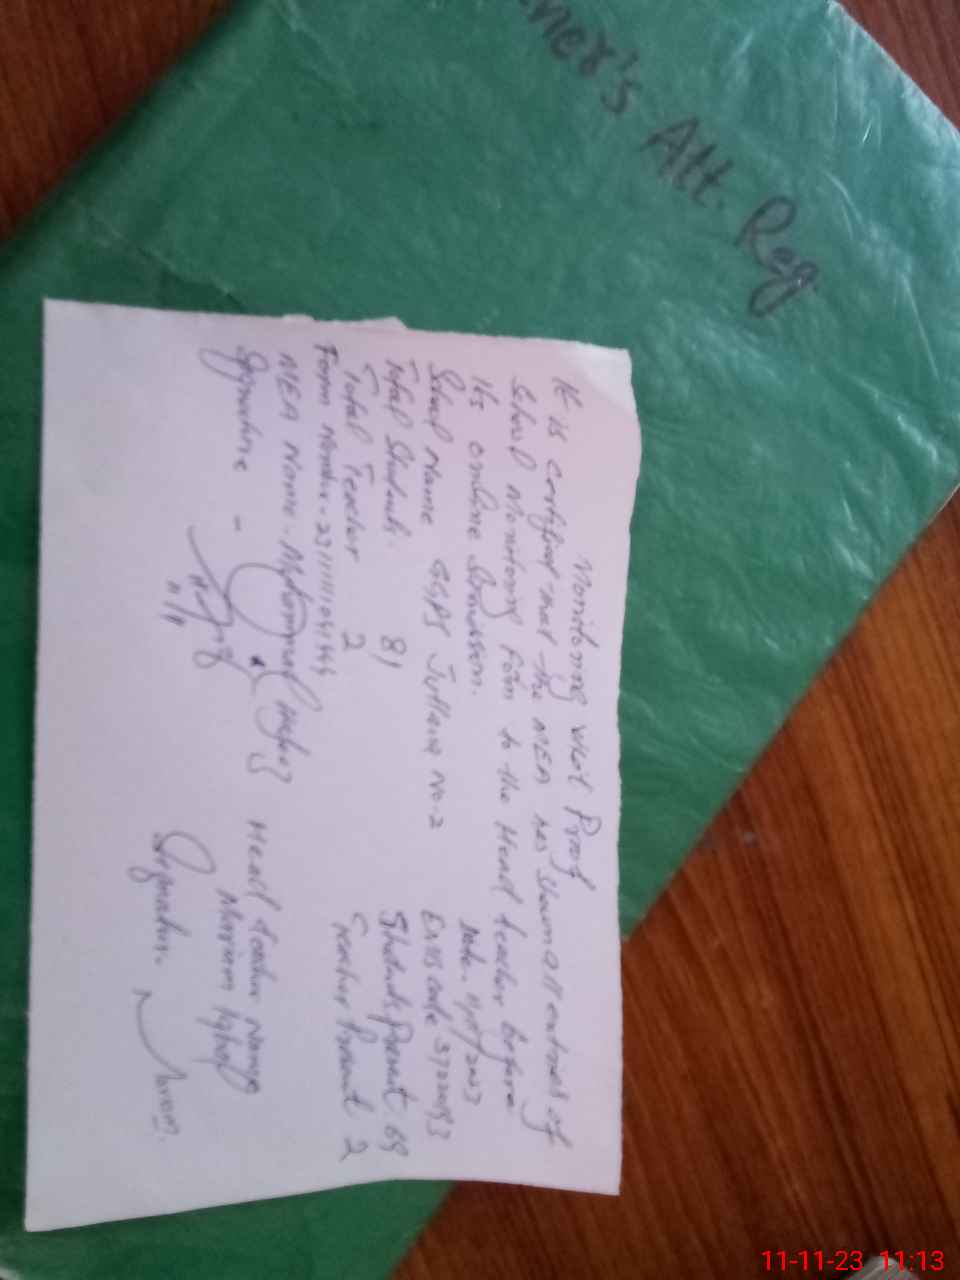 ner's Att. Reg
Monitoring visit Proof
It is certified that the MEA has shown all entries of
School Monitoring Form to the Head teacher before
its online Submission.
Date 11/11/2023
School Name GGPS Jutlana No-2 Emis code
Total Students. 81 Students Present 69
Total Teacher 2 Teacher Present 2
Form Number -
MEA Name - Muhammad Head teacher Name
Mariam
Signature - Signature.
11-11-23 11:13